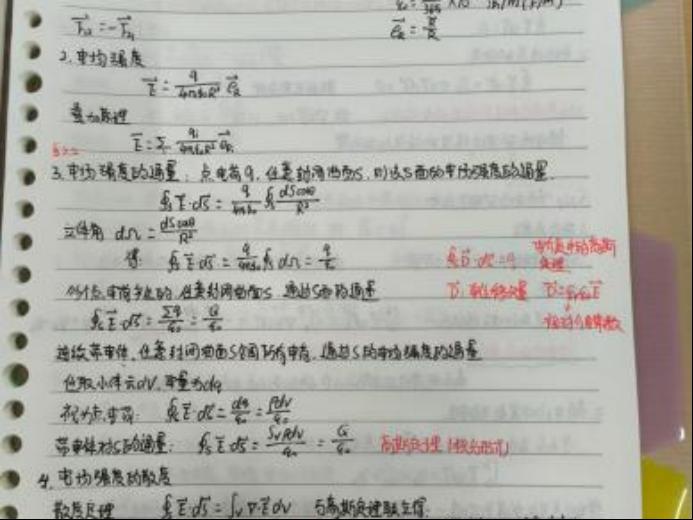 F₁₂ = -F₂₁
e_R = R/R
2.电场强度
E = q/4πε₀R² e_R
叠加原理
E = Σ qᵢ/4πε₀R² e_R
3.电场强度的通量: 点电荷q, 任意封闭曲面S, 则该S面的电场强度的通量
∮ₛ E·dS = q/4πε₀ ∮ₛ dScosθ/R²
立体角 dΩ = dScosθ/R²
得 ∮ₛ E·dS = q/4πε₀ ∮ₛ dΩ = q/ε₀
∮ₛ D·dS = q 的高斯定理
任意封闭曲面S 通过S面的通量
D: 电位移矢量 D = ε₀εᵣE
∮ₛ E·dS = Σq/ε₀ = Q/ε₀
相对介电常数
连续带电体, 任意封闭曲面S包围所有电荷, 通过S的电场强度的通量
任取小体元dV, 电量为dq
视为点电荷: ∮ₛ E·dS = dq/ε₀ = ρdv/ε₀
带电体对S的通量: ∮ₛ E·dS = ∫ᵥρdv/ε₀ = Q/ε₀ 高斯定理(积分形式)
4.电场强度的散度
散度定理 ∮ₛ E·dS = ∫ᵥ ∇·E dv 与高斯定理联立得: